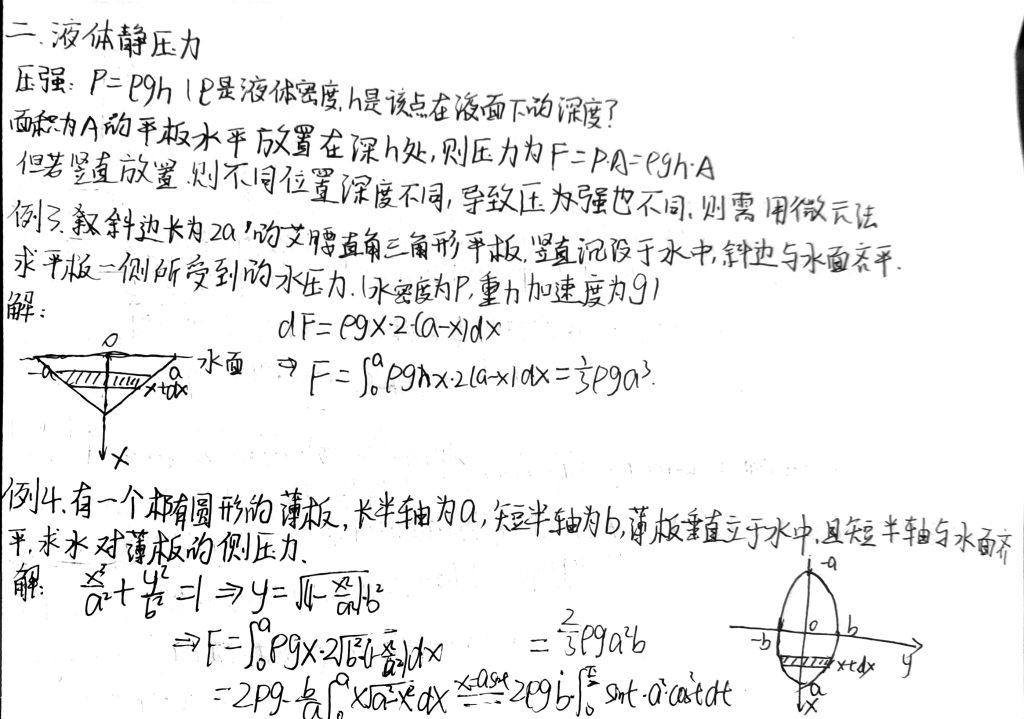 二.液体静压力
压强：P=ρgh（ρ是液体密度,h是该点在液面下的深度）
面积为A的平板水平放置在深h处,则压力为F=P·A=ρgh·A
但若竖直放置.则不同位置深度不同,导致压强也不同.则需用微元法
例3.斜边长为2a的等腰直角三角形平板.竖直沉没于水中,斜边与水面齐平.
求平板一侧所受到的水压力.(水密度为ρ,重力加速度为g)
解:
dF=ρgx·2·(a-x)dx
⇒ F=∫₀ᵃ ρgx·2(a-x)dx=⅓ρga³.
O
-a
a
水面
x+dx
x
例4.有一个椭圆形的薄板,长半轴为a,短半轴为b,薄板垂直立于水中,且短半轴与水面齐
平,求水对薄板的侧压力.
解: x²/a²+y²/b²=1 ⇒ y=√(1-x²/a²)·b²
⇒F=∫₀ᵃ ρgx·2√b²(1-x²/a²)dx =2/3ρga²b
=2ρg·b/a∫₀ᵃ x√a²-x² dx x=asint 2ρgb·∫₀^π/2 sint·a²·cos²tdt
-a
-b
o
b
y
x+dx
a
x